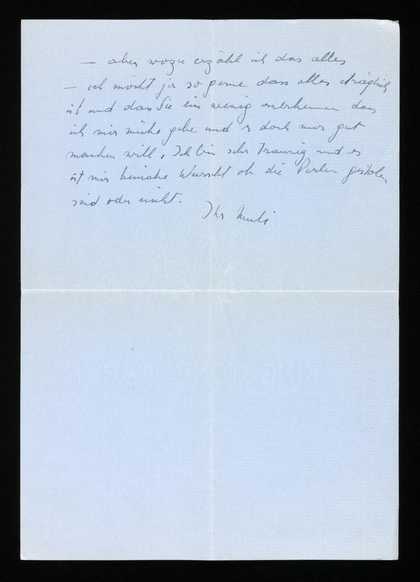 – aber wozu erzähl ich das alles
– ich möcht ja so gerne dass alles erträglich
ist und dass Sie ein wenig anerkennen dass
ich mir mühe gebe und 's doch nur gut
machen will. Ich bin sehr traurig und es
ist mir beinahe Wurscht ob die Perlen gestohlen
sind oder nicht.
Ihr